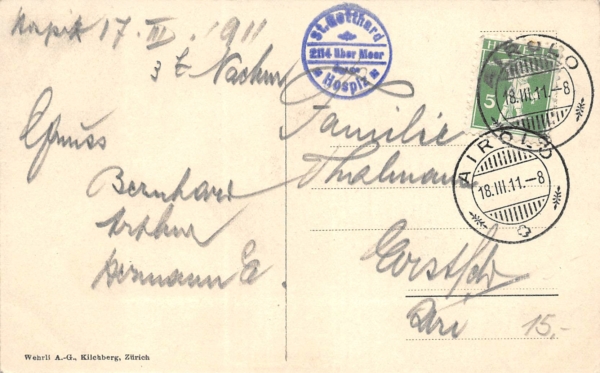 Hospiz 17. III. 1911
3 t Nachm
Gruss
Bernhard
Arthur
Hermann E.
St. Gotthard
2114 über Meer
Hospiz
5
AIROLO
18.III.11.–8
AIROLO
18.III.11.–8
Familie
Thalmann
Uri
15,-
Wehrli A.-G., Kilchberg, Zürich